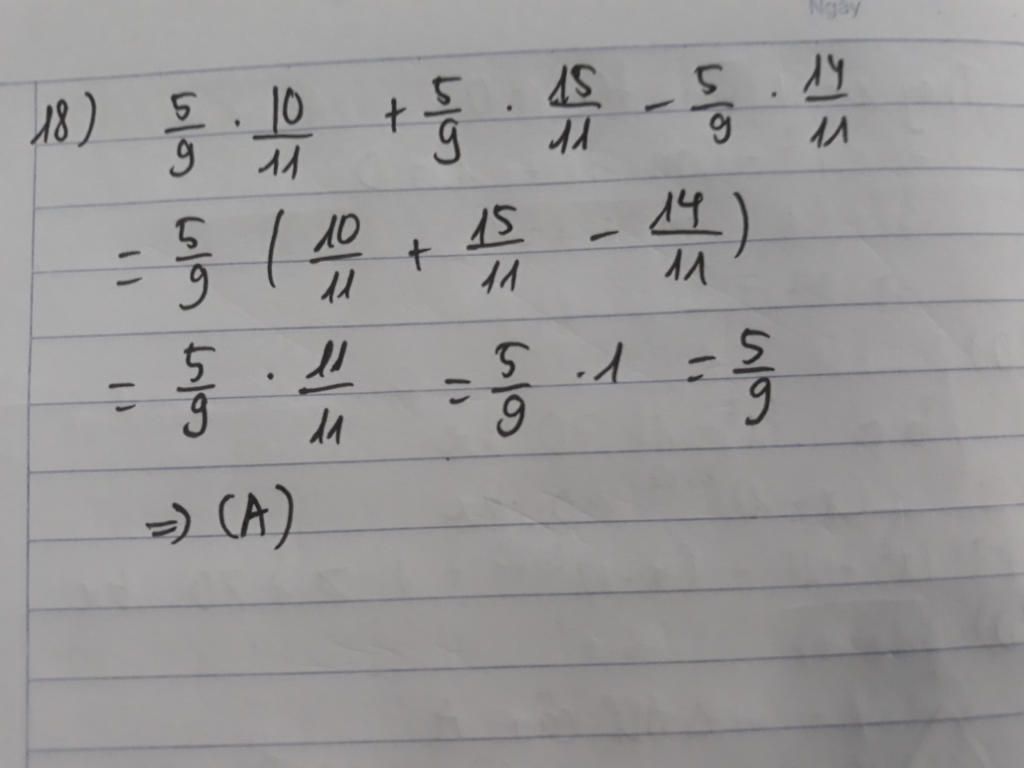 Ngày
18) 5/9 . 10/11 + 5/9 . 15/11 - 5/9 . 14/11
= 5/9 ( 10/11 + 15/11 - 14/11 )
= 5/9 . 11/11 = 5/9 . 1 = 5/9
=> (A)